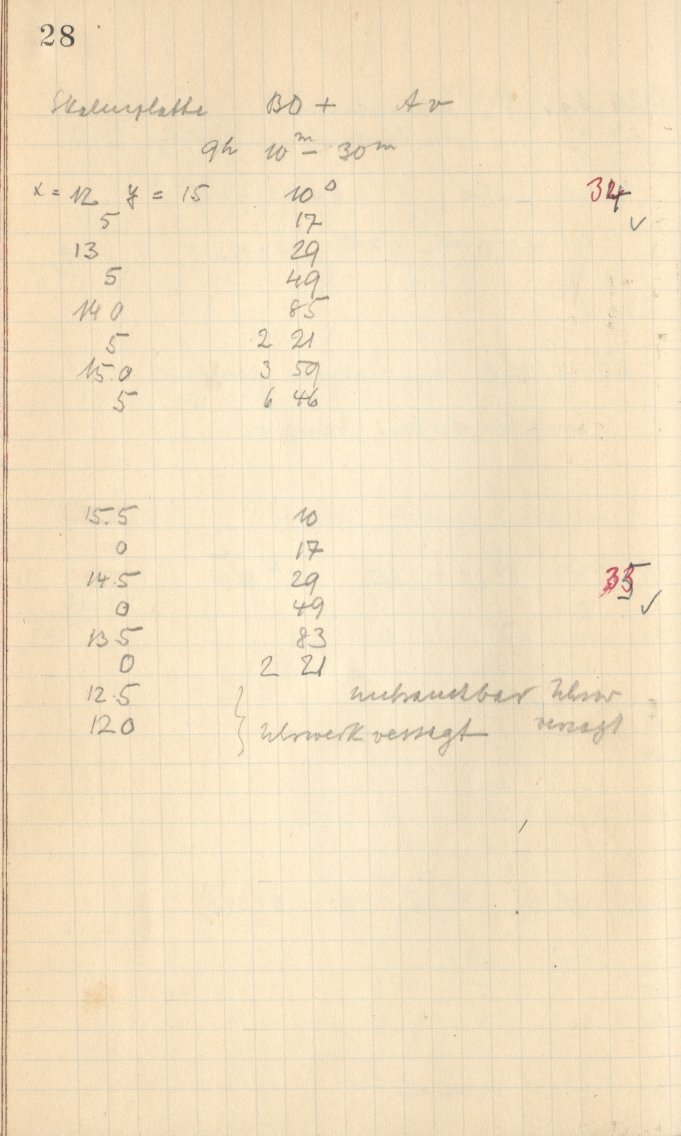 28
Skalenplatte BD + Av
9h 10m – 30m
x = 12 y = 15 10⁰ 34
5 17 ✓
13 29
5 49
14 0 85
5 2 21
15.0 3 59
5 6 46
15.5 10
0 17
14.5 29 35
0 49 ✓
13.5 83
0 2 21
12.5 unbrauchbar Uhrw
12 0 } Uhrwerk versagt versagt